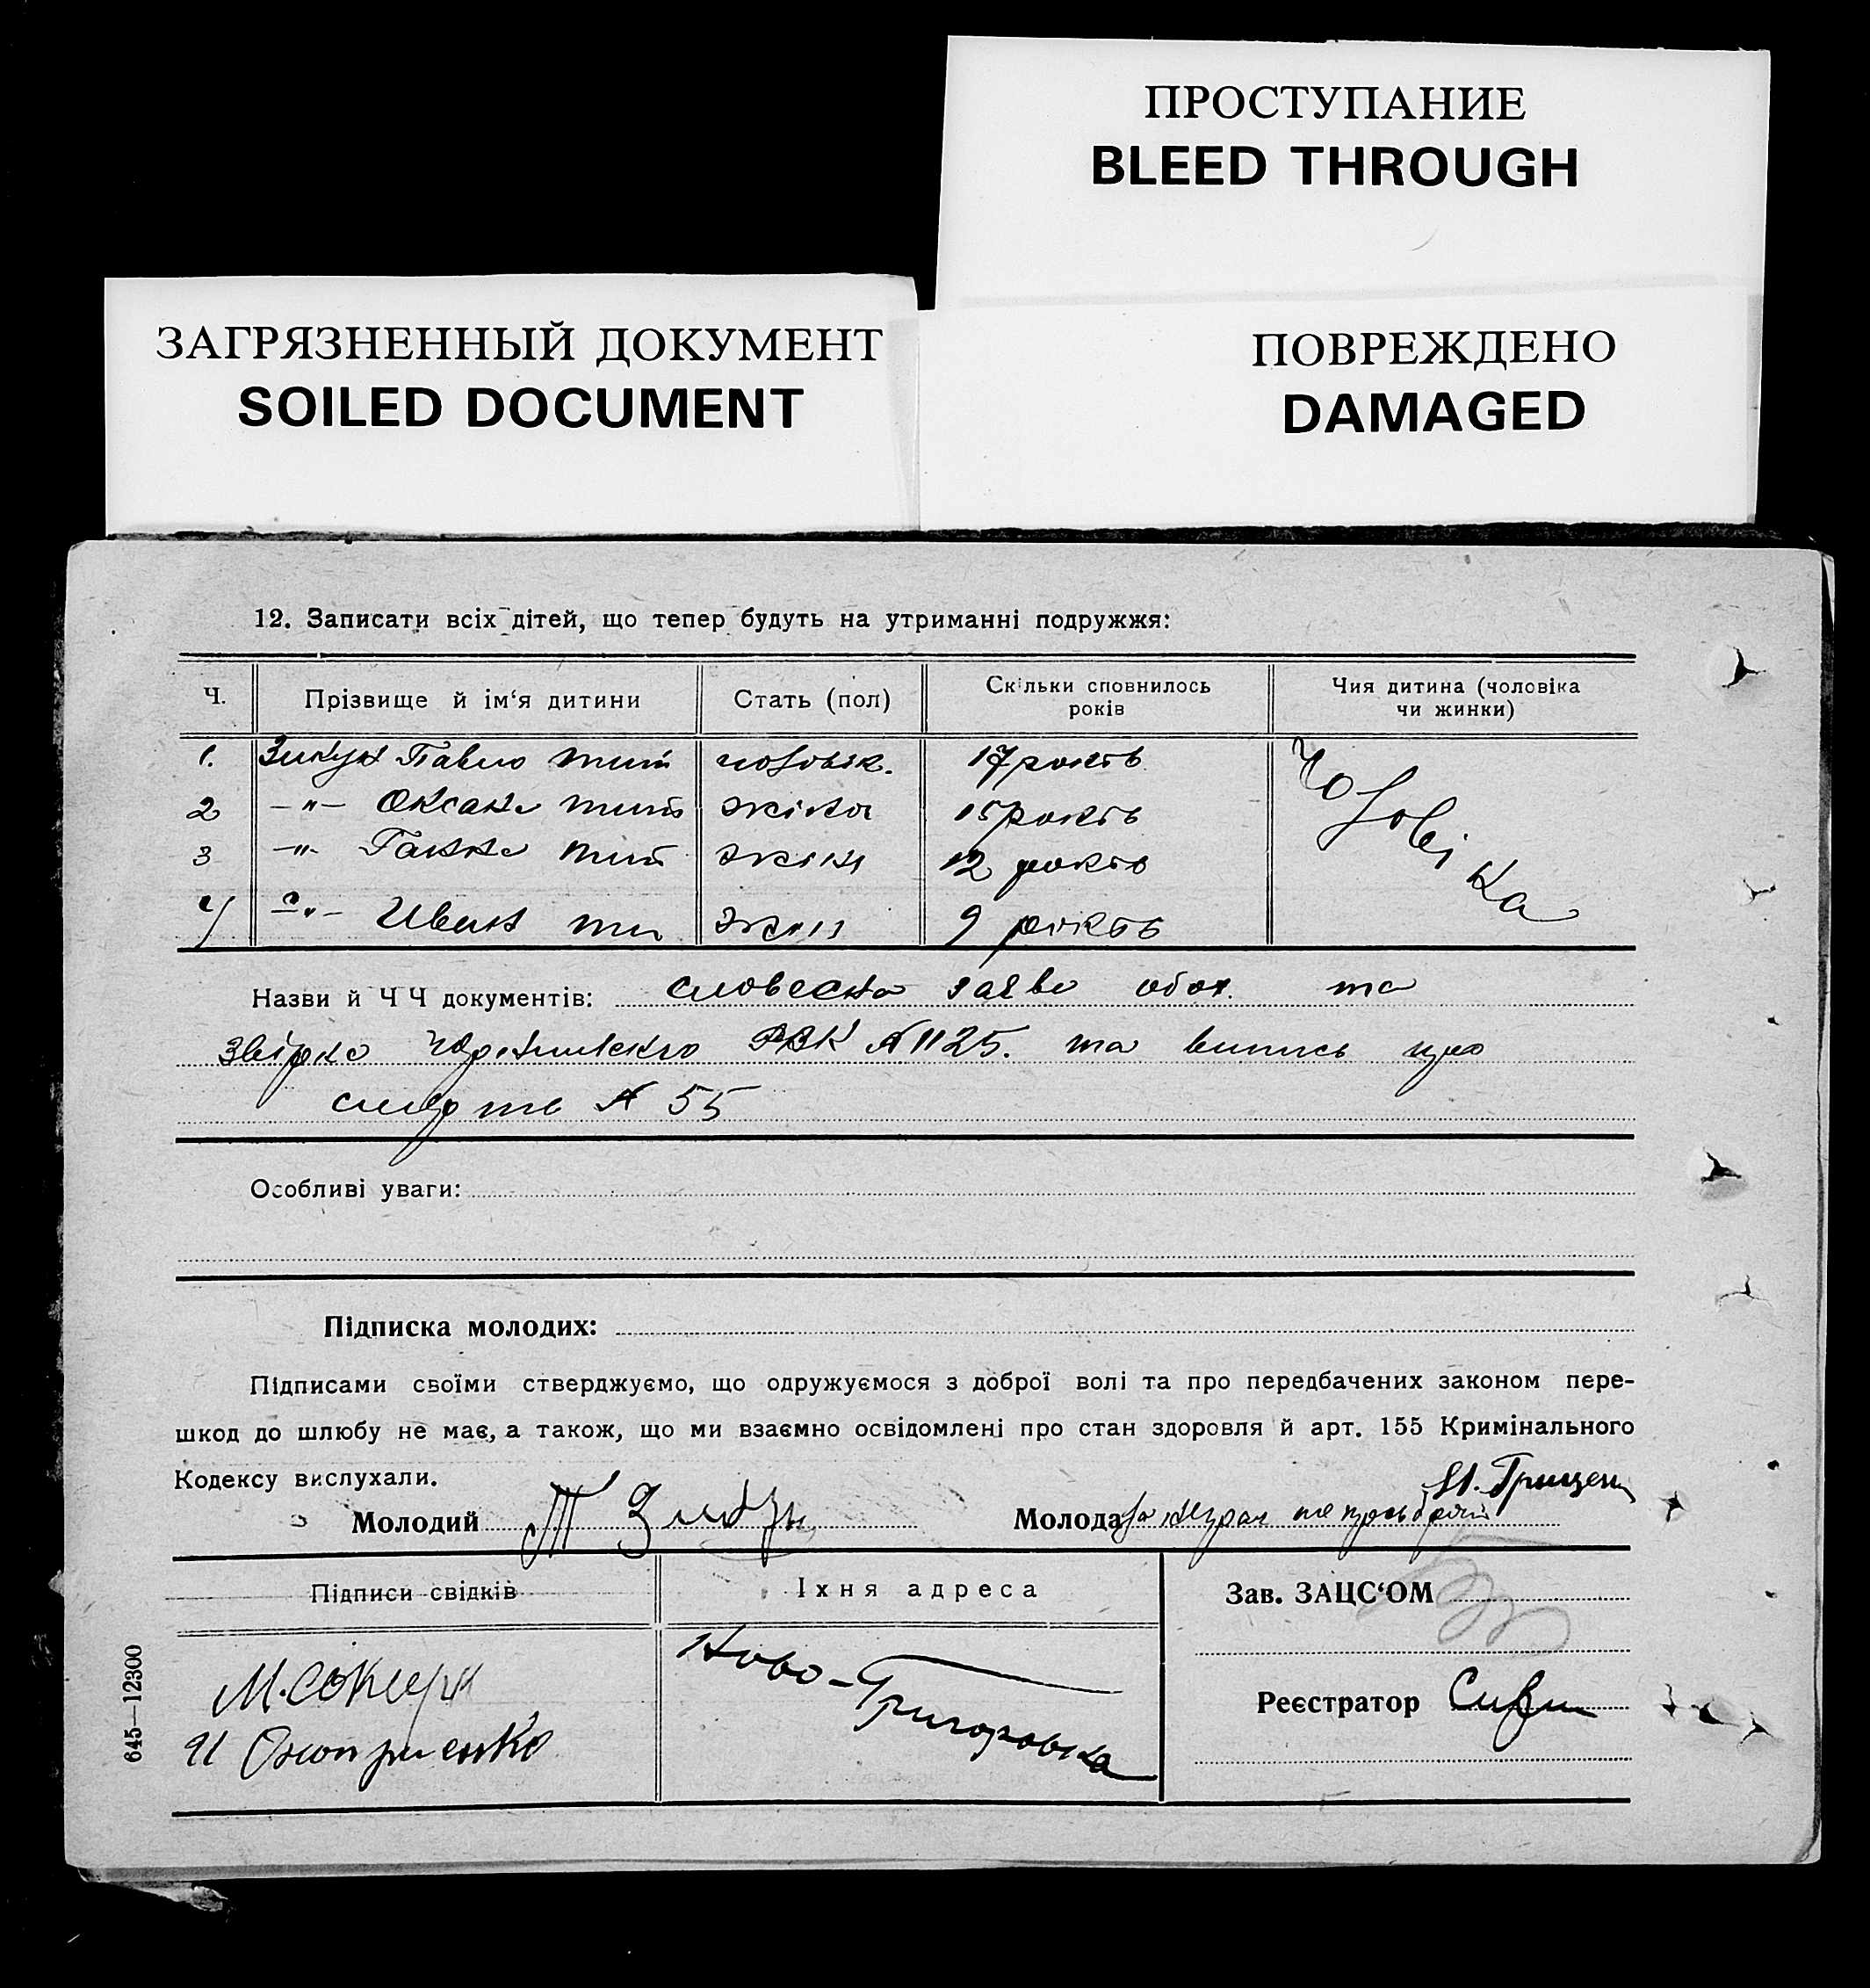 ПРОСТУПАНИЕ
BLEED THROUGH
ЗАГРЯЗНЕННЫЙ ДОКУМЕНТ
SOILED DOCUMENT
ПОВРЕЖДЕНО
DAMAGED
12. Записати всіх дітей, що тепер будуть на утриманні подружжя:
Ч. Прізвище й ім‘я дитини Стать (пол) Скільки сповнилось років Чия дитина (чоловіка чи жинки)
1. Павло 17 років Чоловіка
2 -"- Оксана 15 років
3 -"- Ганна 12 років
4 -"- Иван 9 років
Назви й Ч Ч документів: словесна заява обох та
РВК № 1125. та випись про
смерть № 55
Особливі уваги:
Підписка молодих:
Підписами своїми стверджуємо, що одружуємося з доброї волі та про передбачених законом пере-
шкод до шлюбу не має, а також, що ми взаємно освідомлені про стан здоровля й арт. 155 Кримінального
Кодексу вислухали.
Молодий Молода
Підписи свідків Їхня адреса Зав. ЗАЦС‘ОМ
Ново-Григоровка
Реєстратор
645—12300